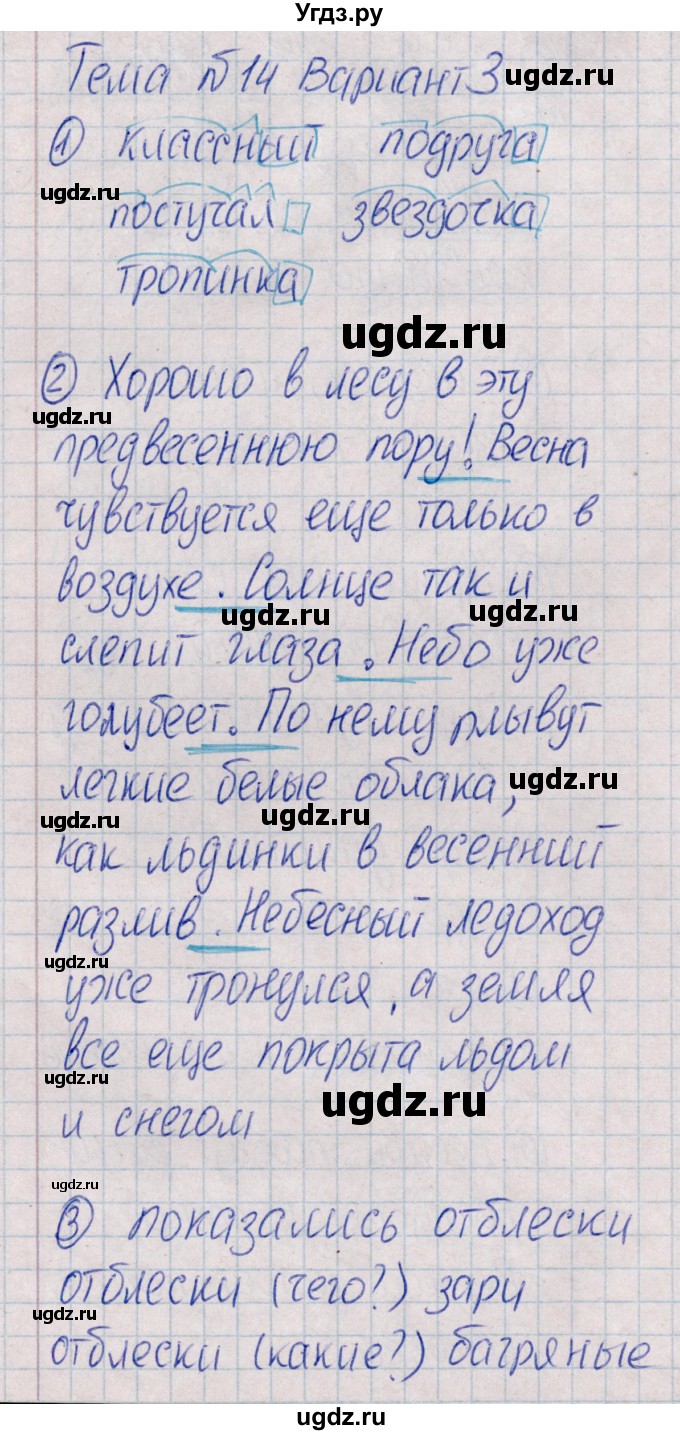 Угдз.ру
Тема №14 Вариант 3
ugdz.ru
① классный подруга
ugdz.ru
постучал звездочка
тропинка
ugdz.ru
② Хорошо в лесу в эту
ugdz.ru
предвесеннюю пору! Весна
чувствуется еще только в
воздухе. Солнце так и
ugdz.ru ugdz.ru
слепит глаза. Небо уже
голубеет. По нему плывут
легкие белые облака,
ugdz.ru
ugdz.ru ugdz.ru
как льдинки в весенний
разлив. Небесный ледоход
ugdz.ru
уже тронулся, а земля
все еще покрыта льдом
ugdz.ru ugdz.ru
и снегом
ugdz.ru
③ показались отблески
отблески (чего?) зари
ugdz.ru
отблески (какие?) багряные
ugdz.ru